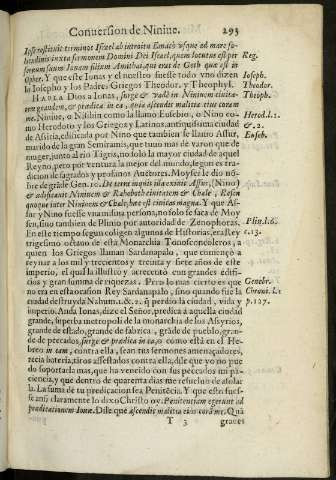 Conuersion de Niniue. 293
Ipse restituit terminos Israel ab introitu Emath vsque ad mare so-
litudinis iuxta sermonem Domini Dei Israel, quem locutus est per Reg.
seruum suum Ionam filium Amithai, qui erat de Geth quæ est in
Opher. Y que este Ionas y el nuestro fuesse todo vno dizen Ioseph.
lo Iosepho y los Padres Griegos Theodor. y Theophyl. Theodor.
HABLA Dios a Ionas, surge & vade in Niniuem ciuita- Theoph.
tem grandem, & prædica in ea, quia ascendit malitia eius coram
me. Niniue, o Nisibin como la llamo Eusebio, o Nino co- Herod.l.1.
mo Herodoto y los Griegos y Latinos, antiquissima ciudad & 2.
de Assiria, edificada por Nino que tambien se llamo Assur, Euseb.
marido de la gran Semiramis, que tuuo mas de varon que de
muger, junto al rio Tigris, no solo la mayor ciudad de aquel
Reyno, pero por ventura la mejor del mundo, segun es tra-
dicion de sagrados y profanos Auctores. Moyses le dio nō-
bre de grāde Gen. 10. De terra inquit illa exiuit Assur, (Nino)
& ædificauit Niniuem & Rohoboth ciuitatem & Chale, Resen
quoque inter Niniuem & Chale, hæc est ciuitas magna. Y que As-
sur y Nino fuesse vna misma persona, no solo se saca de Moy-
sen, sino tambien de Plinio por autoridad de Zenophoras. Plin.l.6.
En este tiempo segun coligen algunos de Historias, era Rey c.13.
trigesimo octauo de esta Monarchia
quien los Griegos llaman Sardanapalo, que començò a
reynar a los mil y trecientos y treinta y siete años de este
imperio, el qual la illustro y acrecentò con grandes edifi-
cios y gran summa de riquezas. Pero lo mas cierto es que Genebr.
no era en esta ocasion Rey Sardanapalo, sino quando fue la Chrono. l.1
ciudad destruyda Nahum. 1. & 2. q̃ perdio la ciudad, vida y p.127.
imperio. Anda Ionas, dize el Señor, predica à aquella ciudad
grande, superba metropoli de la monarchia de los Assyrios,
grande de estado, grande de fabrica, grāde de pueblo, gran-
de de pecados, surge & prædica in ea, o como està en el He-
breo in eam, contra ella, sean tus sermones amenaçadores,
recia bateria, tiros assestados contra ella, dile que yo no pue
do soportarla mas, que ha vencido con sus peccados mi pa-
ciencia, y que dentro de quarenta dias me resueluo de assolar
la. La suma de tu predicacion sea Penitēcia. Y que esto fues-
se ansi claramente lo dixo Christo oy. Penitentiam egerunt ad
prædicationem Ionæ. Dile que ascendit malitia eius corā me. Quā
T 3 graues